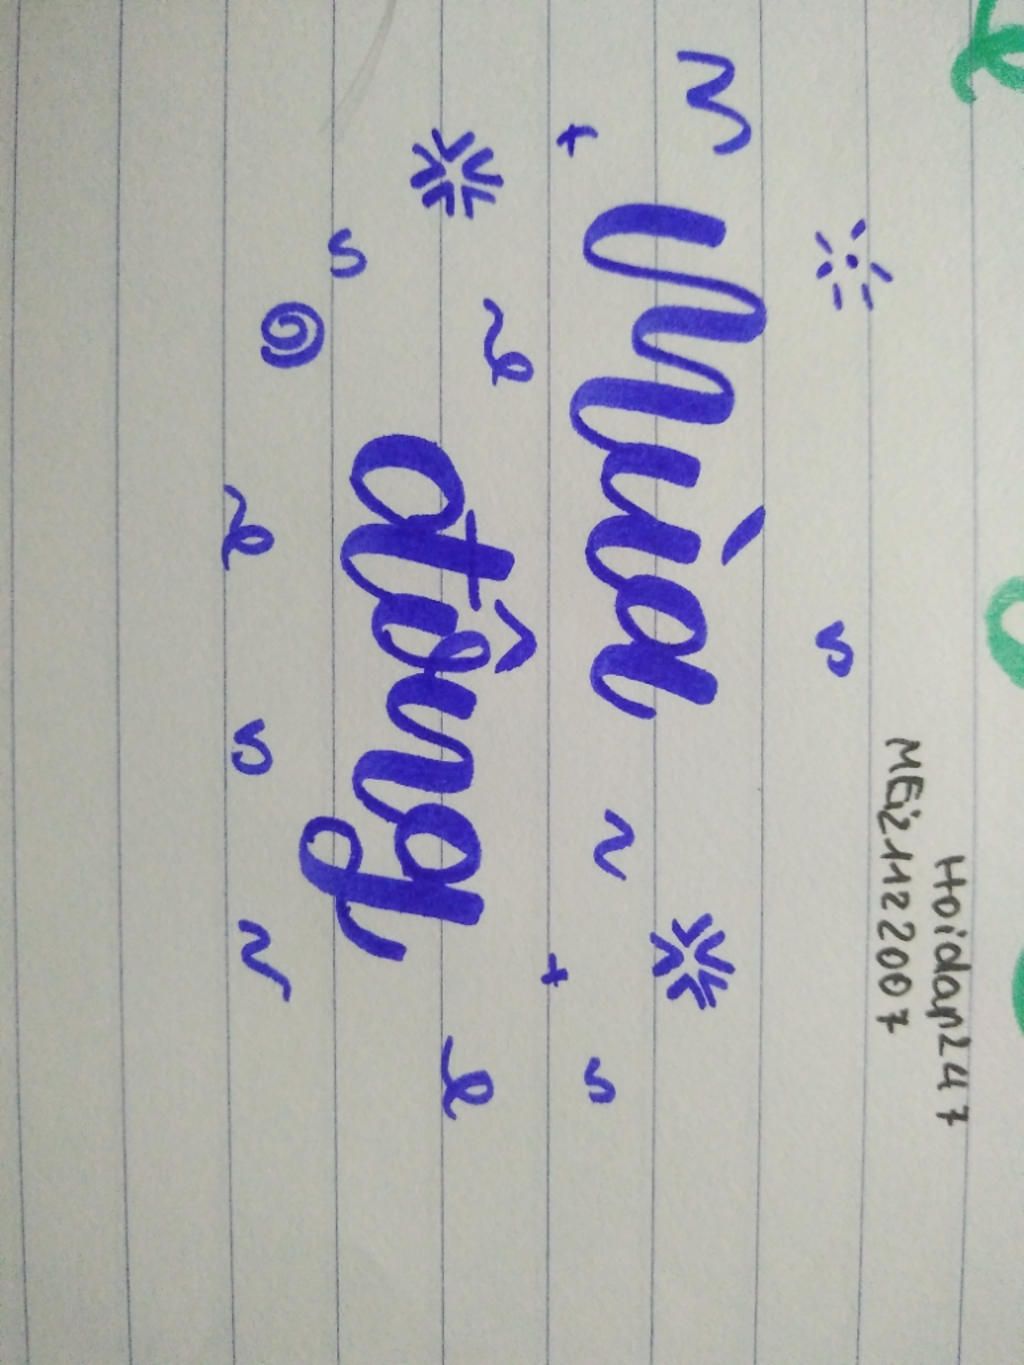 Hoidap247
MGi21122007
Mùa
đông